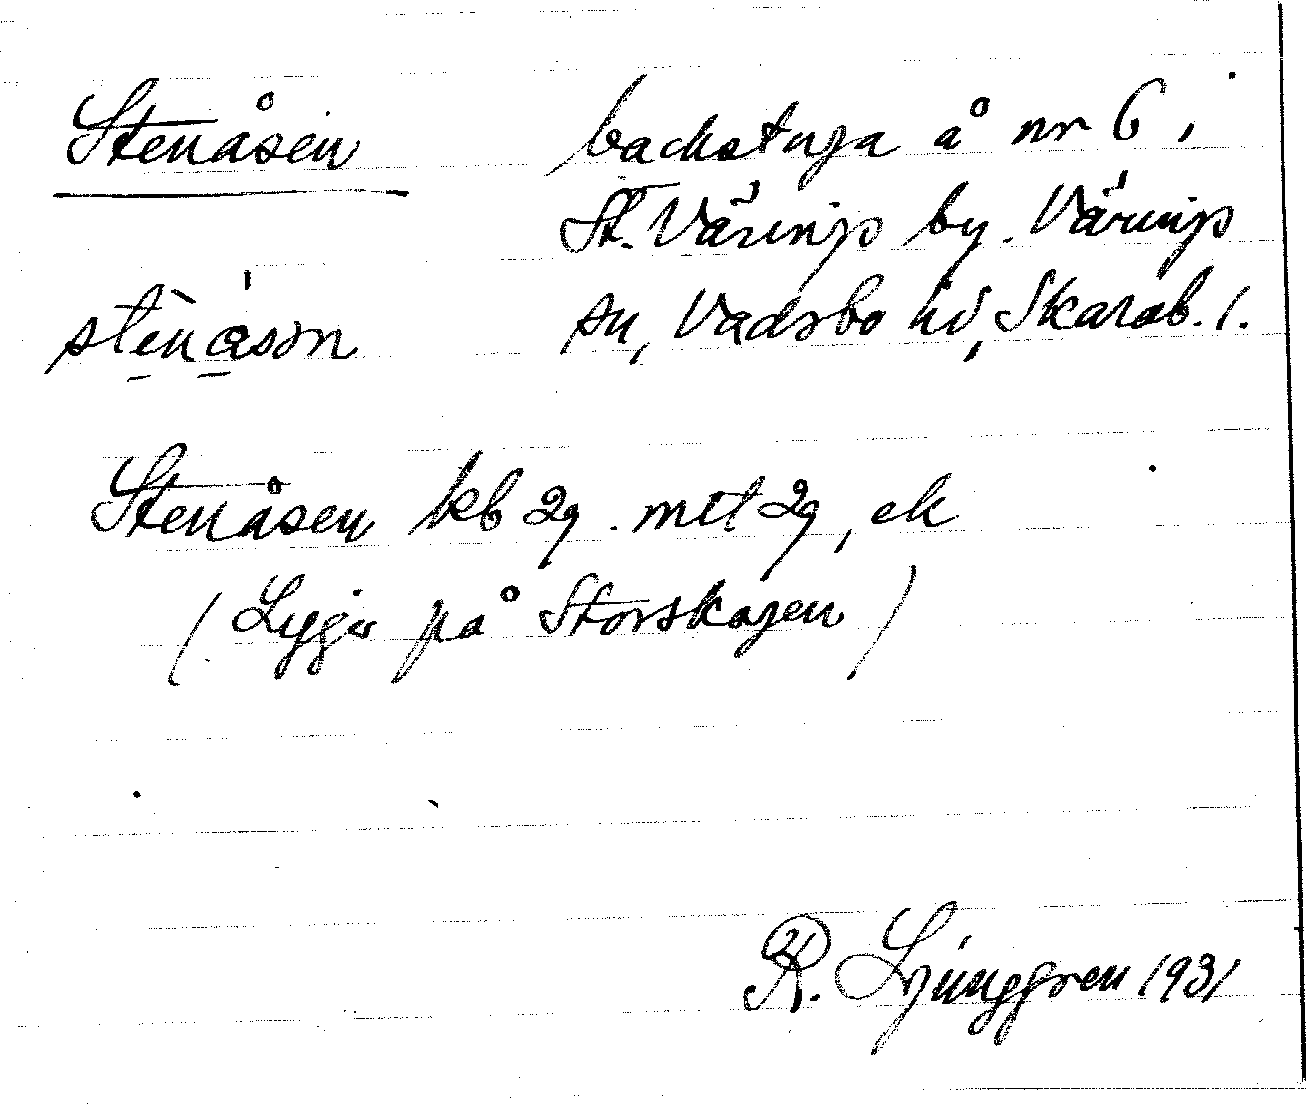 Stenåsen
backstuga å nr 6 i
St. Väring by. Väring
sn, Vadsbo hd, Skarab. l.
stenåsen
Stenåsen kb 29. mtl 29, ek
(Ligger på Storskogen)
R. Ljunggren 1931